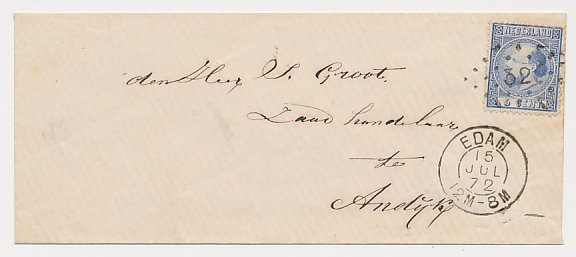 NEDERLAND
32
5 CENT
den Heer S. Groot.
Zaad handelaar
te
Andijk
EDAM
15
JUL
72
12M-8M